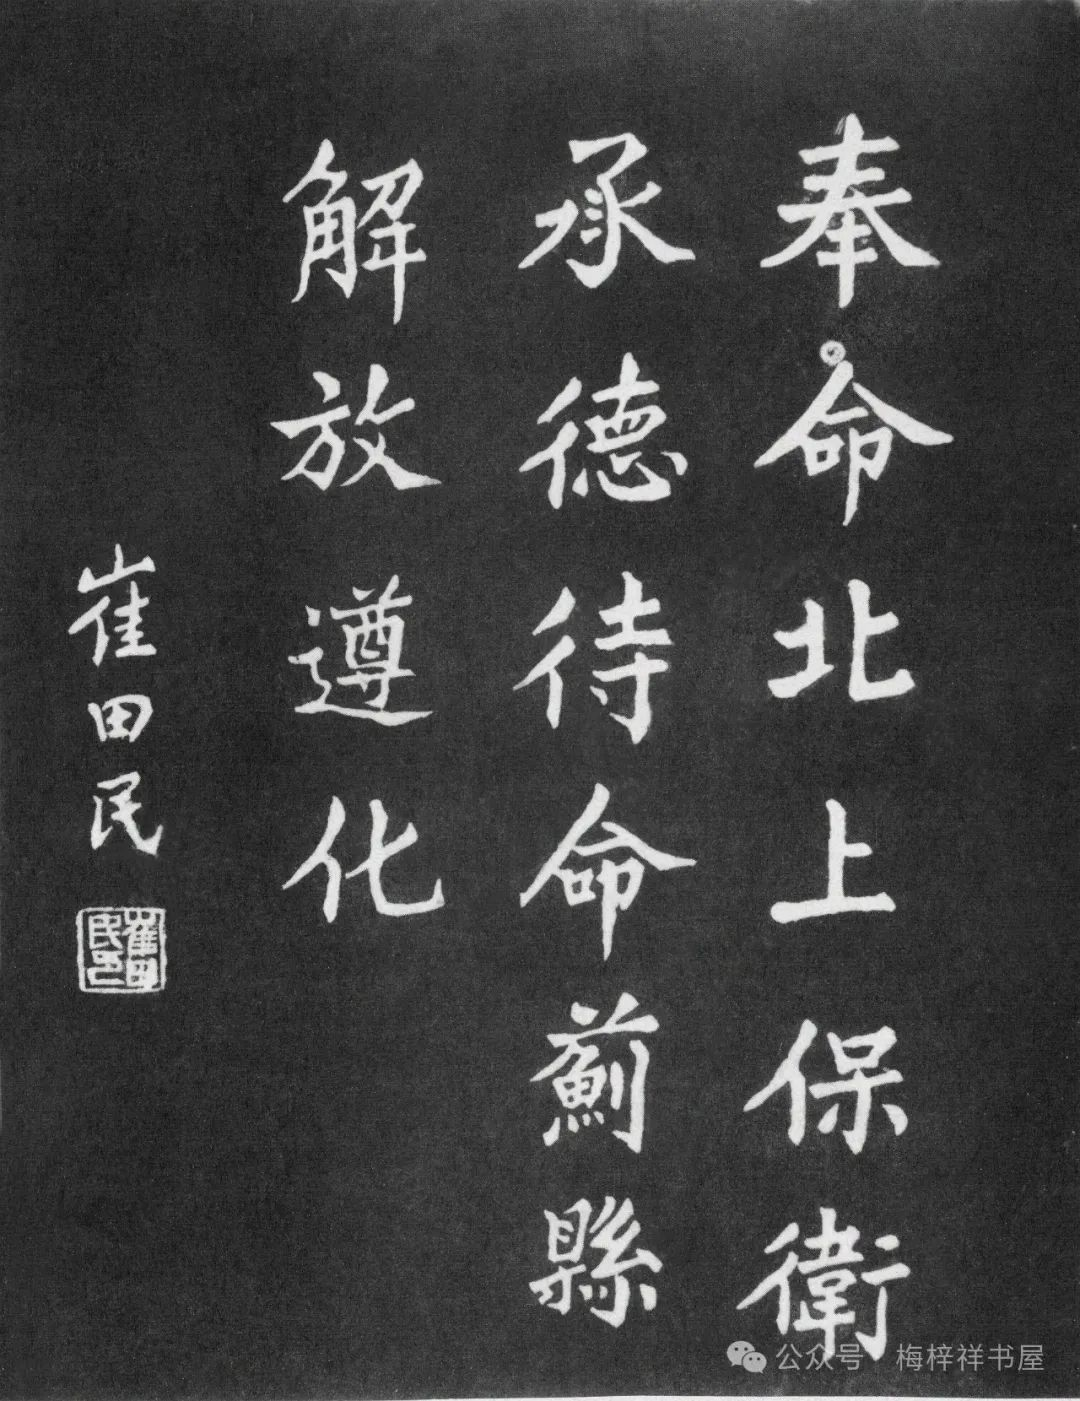 奉命北上保衛
承德待命薊縣
解放遵化
崔田民
崔田民印
公众号 梅梓祥书屋